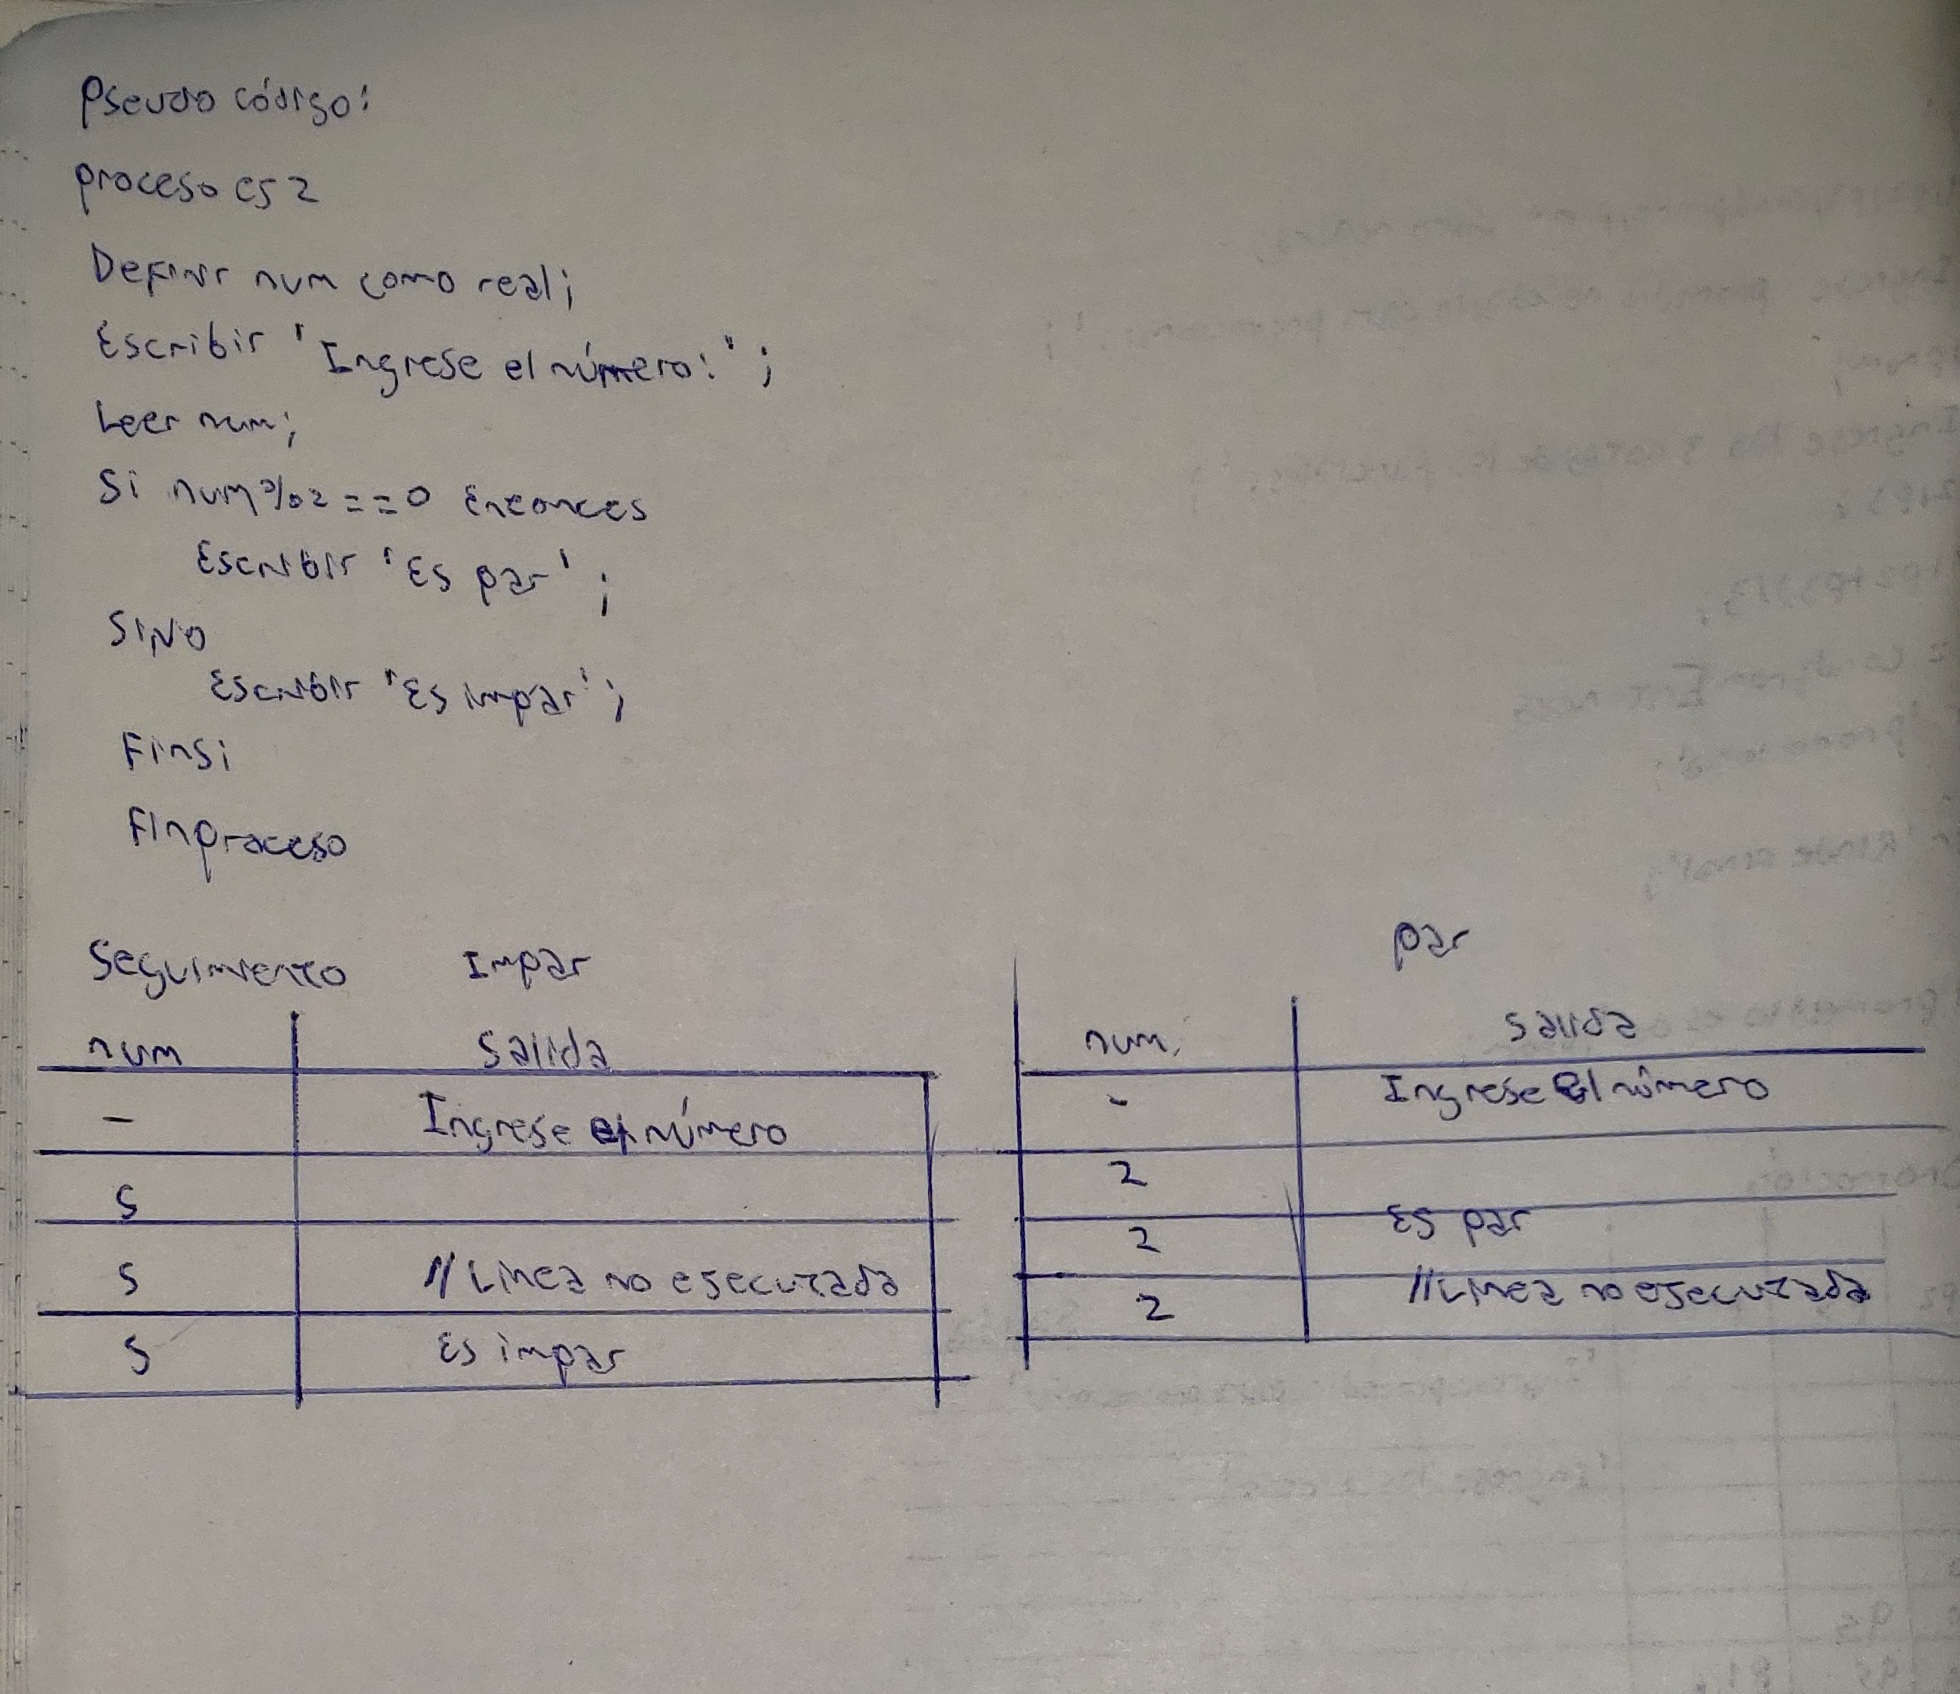 Pseudo código:
proceso ej2
Definir num como real;
Escribir 'Ingrese el número:';
Leer num;
Si num%2==0 Entonces
Escribir 'Es par';
SINO
Escribir 'Es impar';
Finsi
Finproceso
Seguimiento Impar
num Salida
- Ingrese el número
5
5 //Linea no ejecutada
5 Es impar
par
num. salida
- Ingrese El número
2
2 Es par
2 //Linea no ejecutada